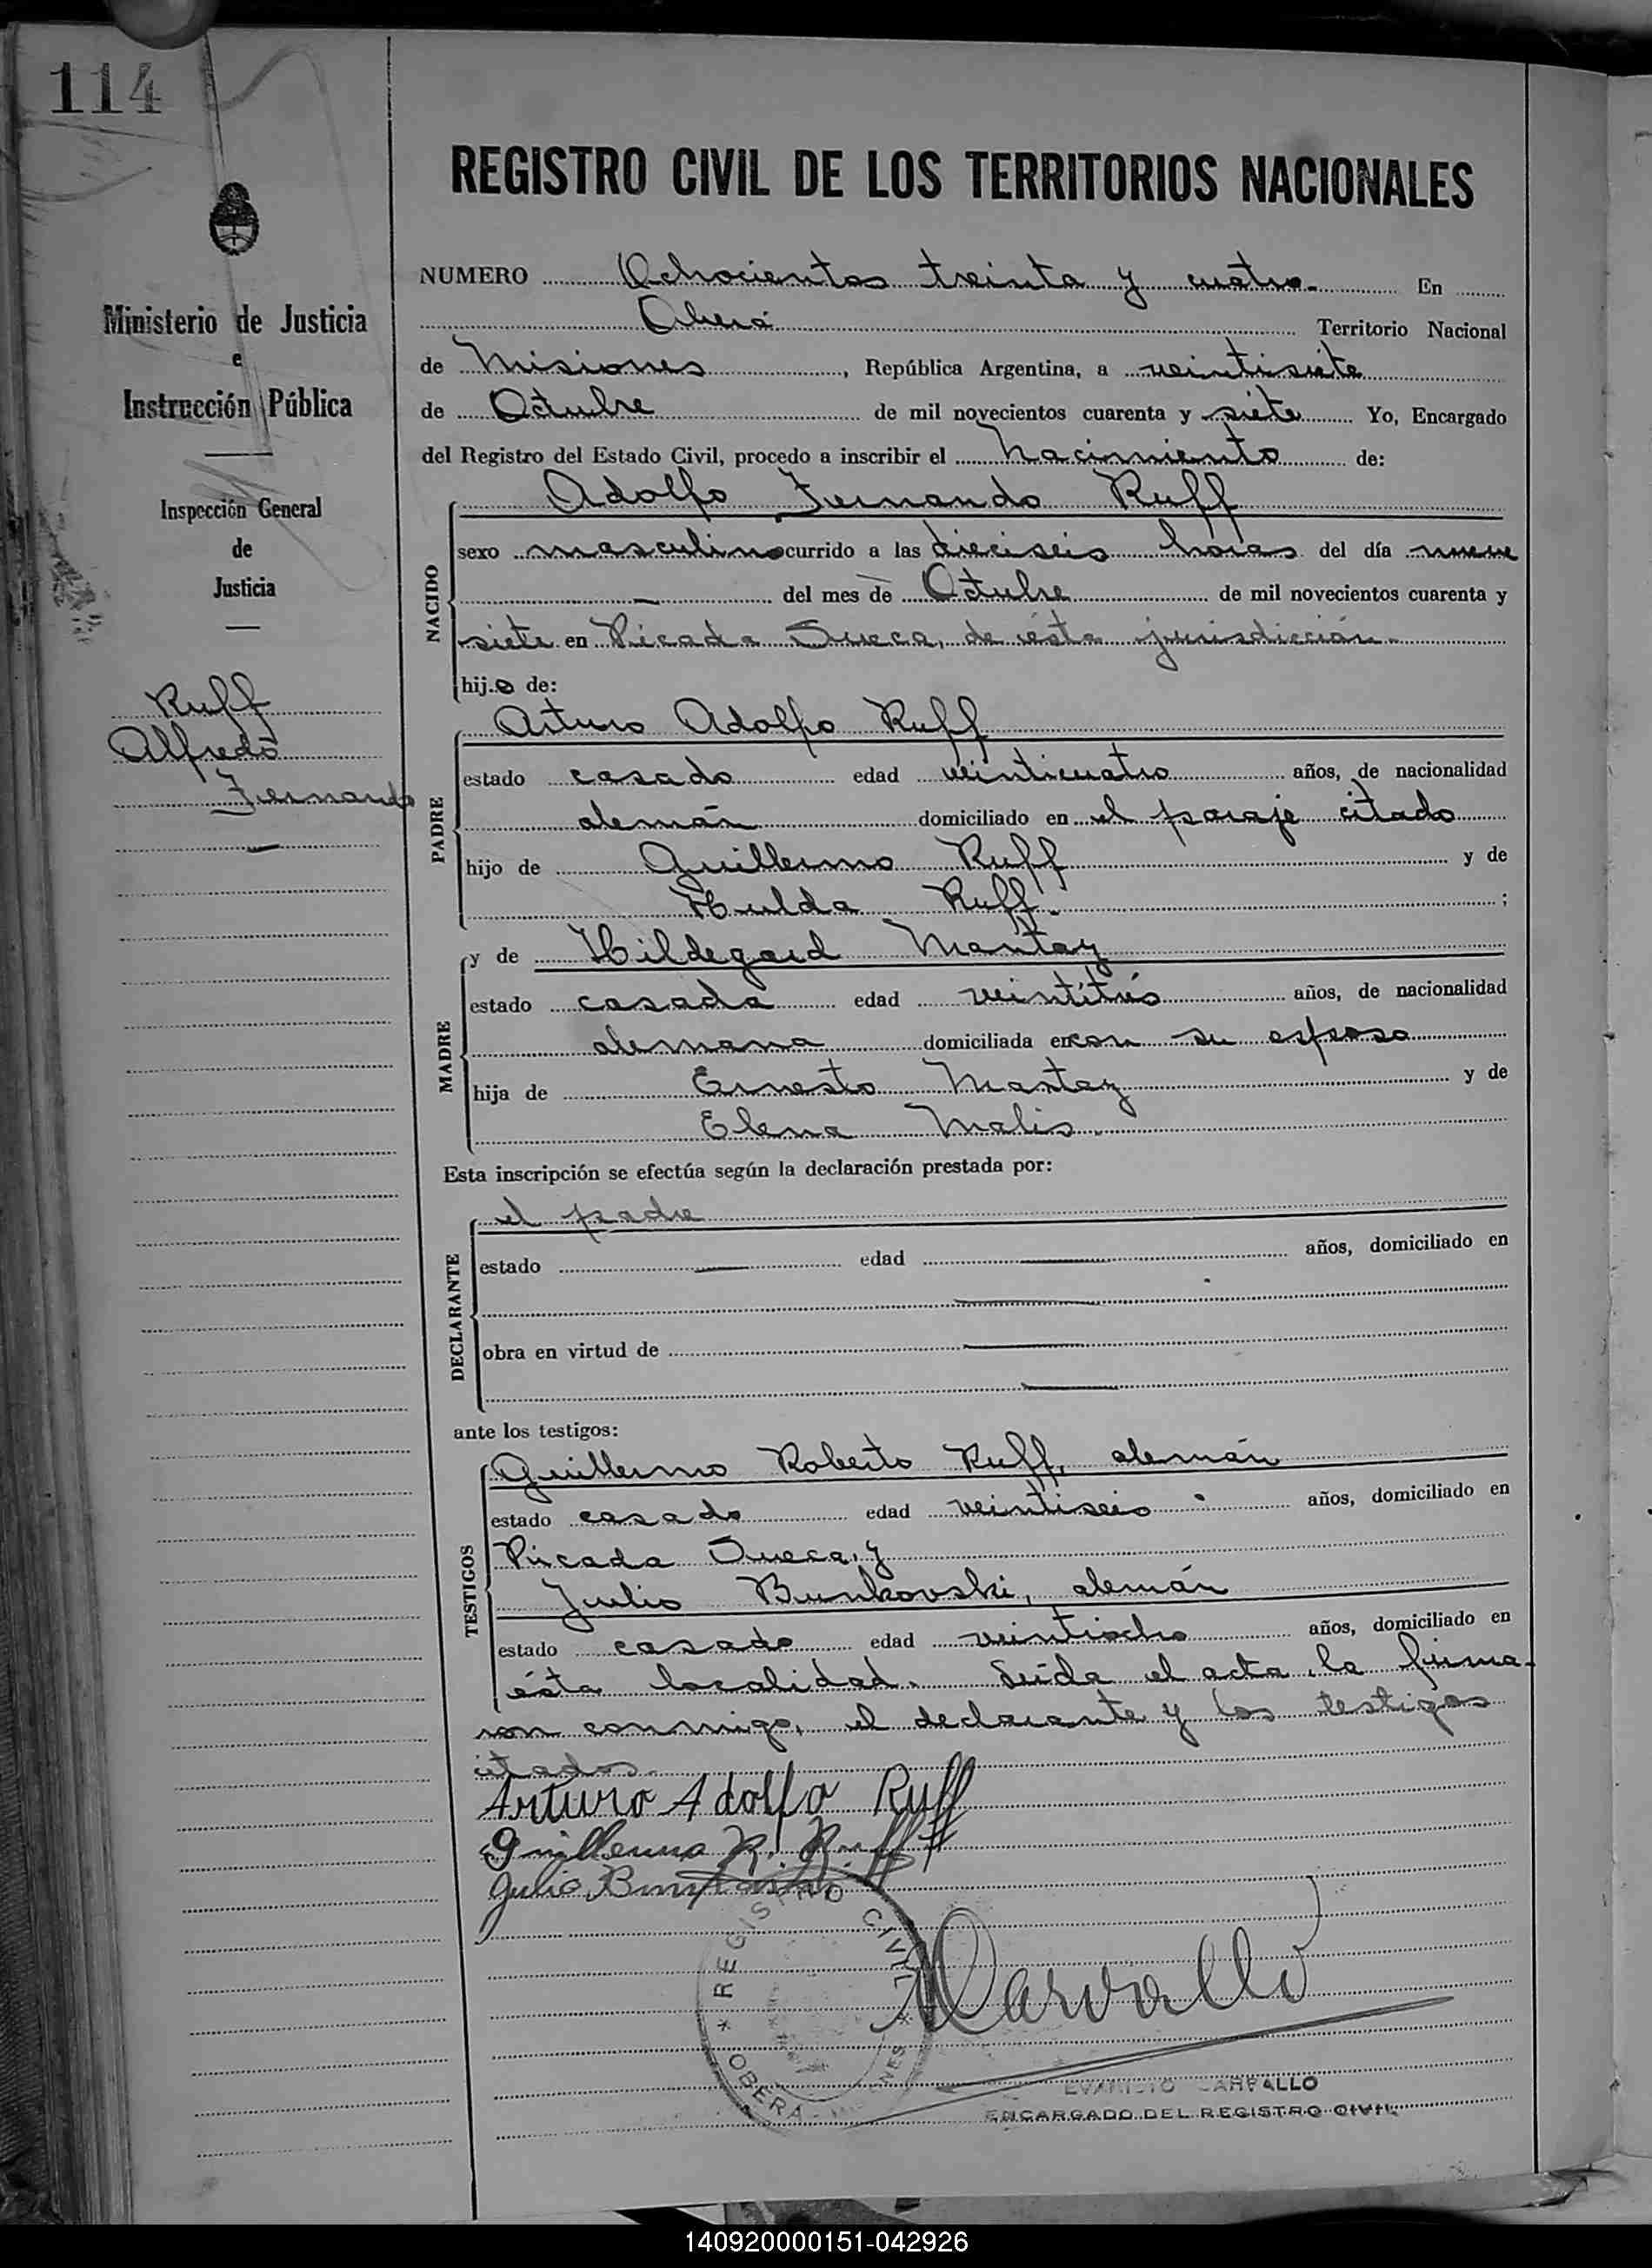 114
REGISTRO CIVIL DE LOS TERRITORIOS NACIONALES
Ministerio de Justicia
e
Instrucción Pública
Inspección General
de
Justicia
Ruff
Alfredo
Fernando
NUMERO Ochocientos treinta y cuatro. En
Oberá Territorio Nacional
de Misiones, República Argentina, a veintisiete
de Octubre de mil novecientos cuarenta y siete Yo, Encargado
del Registro del Estado Civil, procedo a inscribir el Nacimiento de:
NACIDO
Adolfo Fernando Ruff
sexo masculino ocurrido a las dieciseis horas del día nueve
del mes de Octubre de mil novecientos cuarenta y
siete en Picada Sueca, de ésta jurisdicción.
hijo de:
PADRE
Arturo Adolfo Ruff
estado casado edad veinticuatro años, de nacionalidad
alemán domiciliado en el paraje citado
hijo de Guillermo Ruff y de
Hulda Ruff. ;
MADRE
y de Hildegard Mantay
estado casada edad veintitrés años, de nacionalidad
alemana domiciliada en con su esposo
hija de Ernesto Mantay y de
Elena Malis.
Esta inscripción se efectúa según la declaración prestada por:
DECLARANTE
el padre
estado — edad — años, domiciliado en
—
obra en virtud de —
—
ante los testigos:
TESTIGOS
Guillermo Roberto Ruff, alemán
estado casado edad veintiseis años, domiciliado en
Picada Sueca, y
Julio Bunkovski, alemán
estado casado edad veintiocho años, domiciliado en
ésta localidad. Leída el acta, la firma-
ron conmigo, el declarante y los testigos
citados.
Arturo Adolfo Ruff
Guillermo R. Ruff
Julio
REGISTRO CIVIL
* OBERA - *
Carvallo
EVARISTO CARVALLO
ENCARGADO DEL REGISTRO CIVIL
140920000151-042926